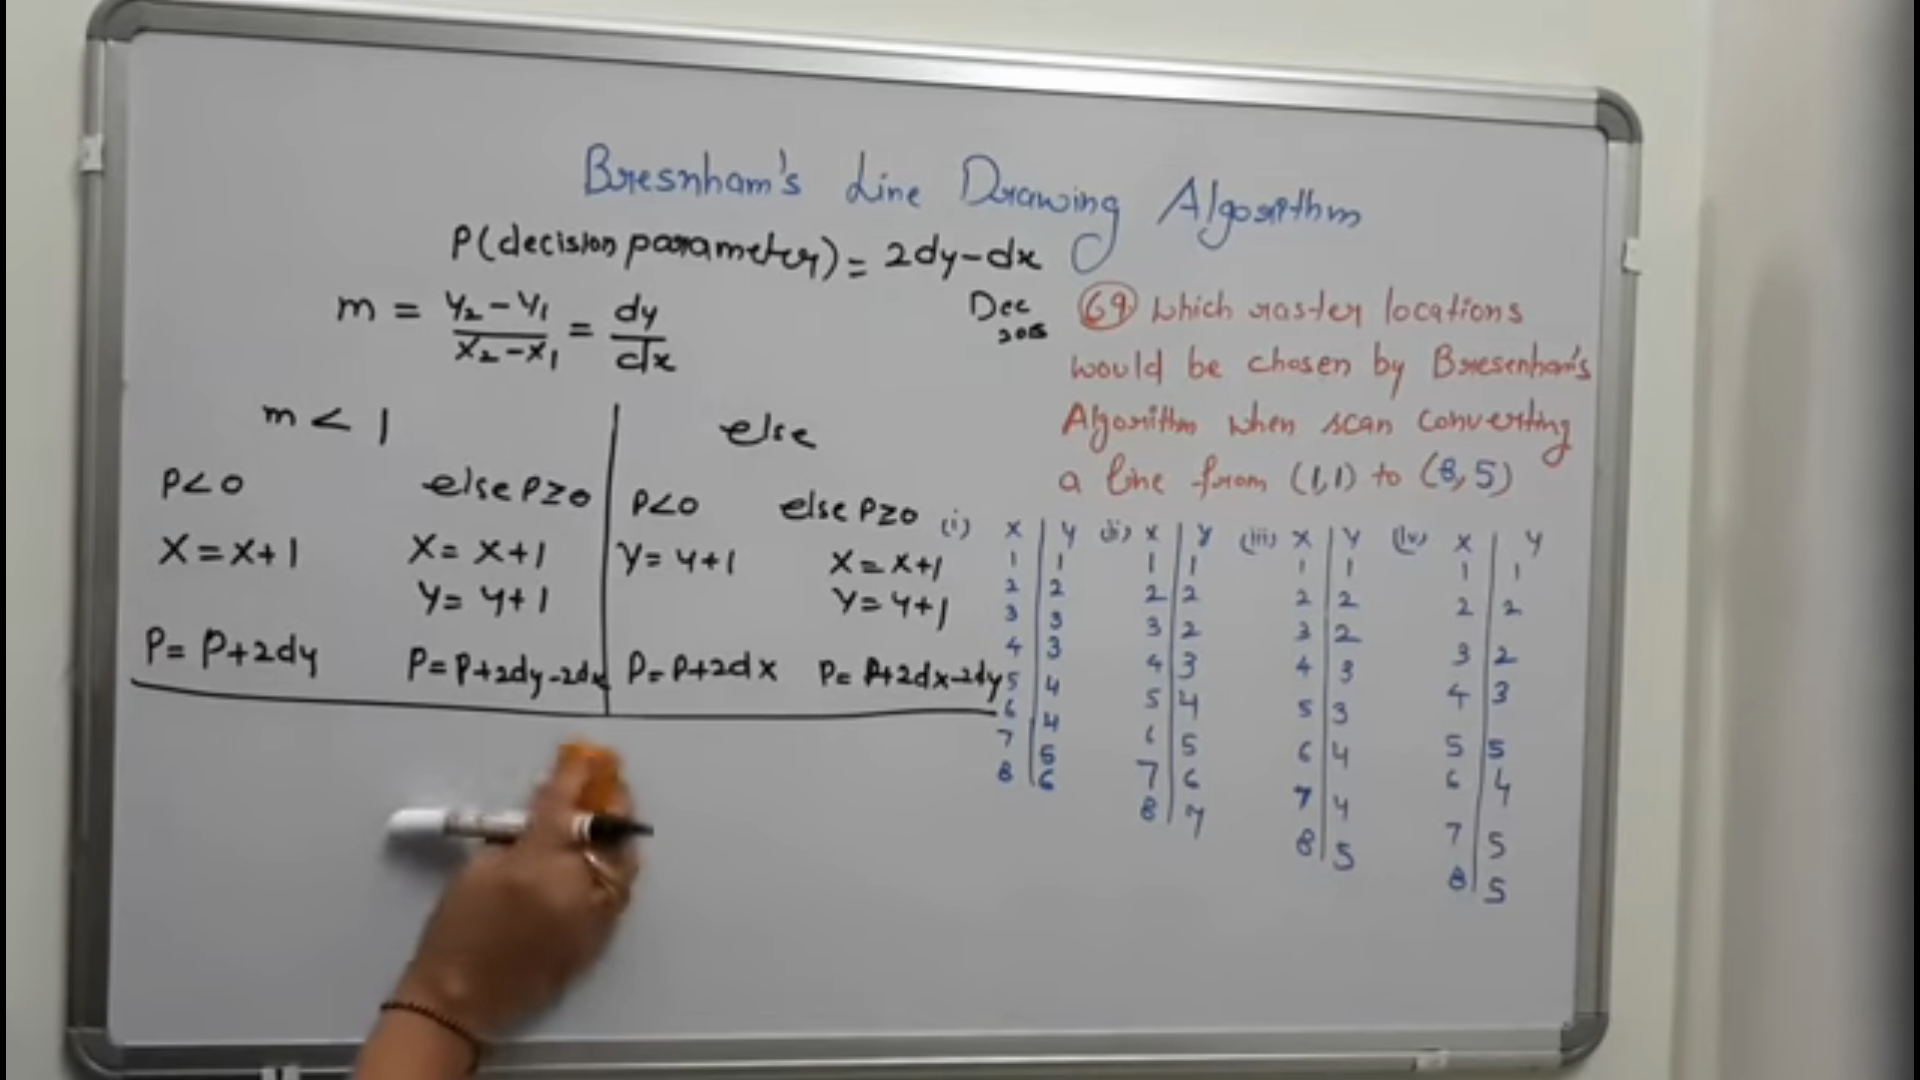 Bresnham's Line Drawing Algorithm
P(decision parameter) = 2dy-dx
m = y₂-y₁ / x₂-x₁ = dy / dx
m < 1
else
P<0
else P≥0
P<0
else P≥0
X = x+1
X = x+1
Y = y+1
X = x+1
Y = y+1
Y = y+1
P = P+2dy
P = P+2dy-2dx
P = P+2dx
P = P+2dx-2dy
Dec
69 Which raster locations
would be chosen by Bresenham's
Algorithm when scan converting
a line from (1,1) to (8,5)
(i) X | Y
1 | 1
2 | 2
3 | 3
4 | 3
5 | 4
6 | 4
7 | 5
8 | 6
(ii) X | Y
1 | 1
2 | 2
3 | 2
4 | 3
5 | 4
6 | 5
7 | 6
8 | 7
(iii) X | Y
1 | 1
2 | 2
3 | 2
4 | 3
5 | 3
6 | 4
7 | 4
8 | 5
(iv) X | Y
1 | 1
2 | 2
3 | 2
4 | 3
5 | 5
6 | 4
7 | 5
8 | 5